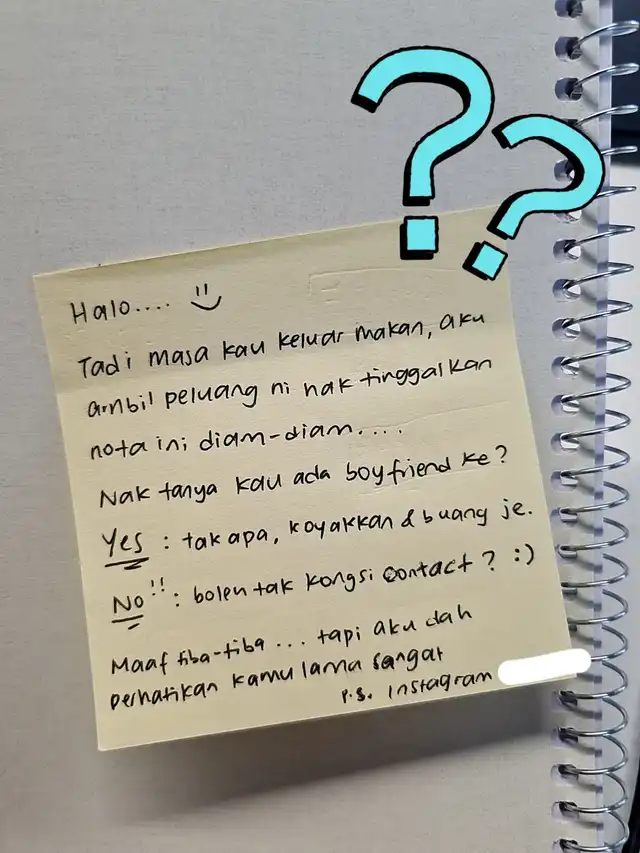 ??
Halo....
Tadi masa kau keluar makan, aku
ambil peluang ni nak tinggalkan
nota ini diam-diam....
Nak tanya kau ada boyfriend ke?
Yes : tak apa, koyakkan & buang je.
No!! : boleh tak kongsi contact? :)
Maaf tiba-tiba... tapi aku dah
perhatikan kamu lama sangat
P.S. Instagram